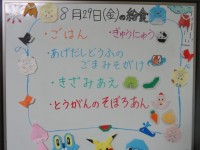 8月29日(金)の給食
・ごはん ・ぎゅうにゅう
・あげだしどうふの
ごまみそがけ
・きざみあえ
・とうがんのそぼろあん